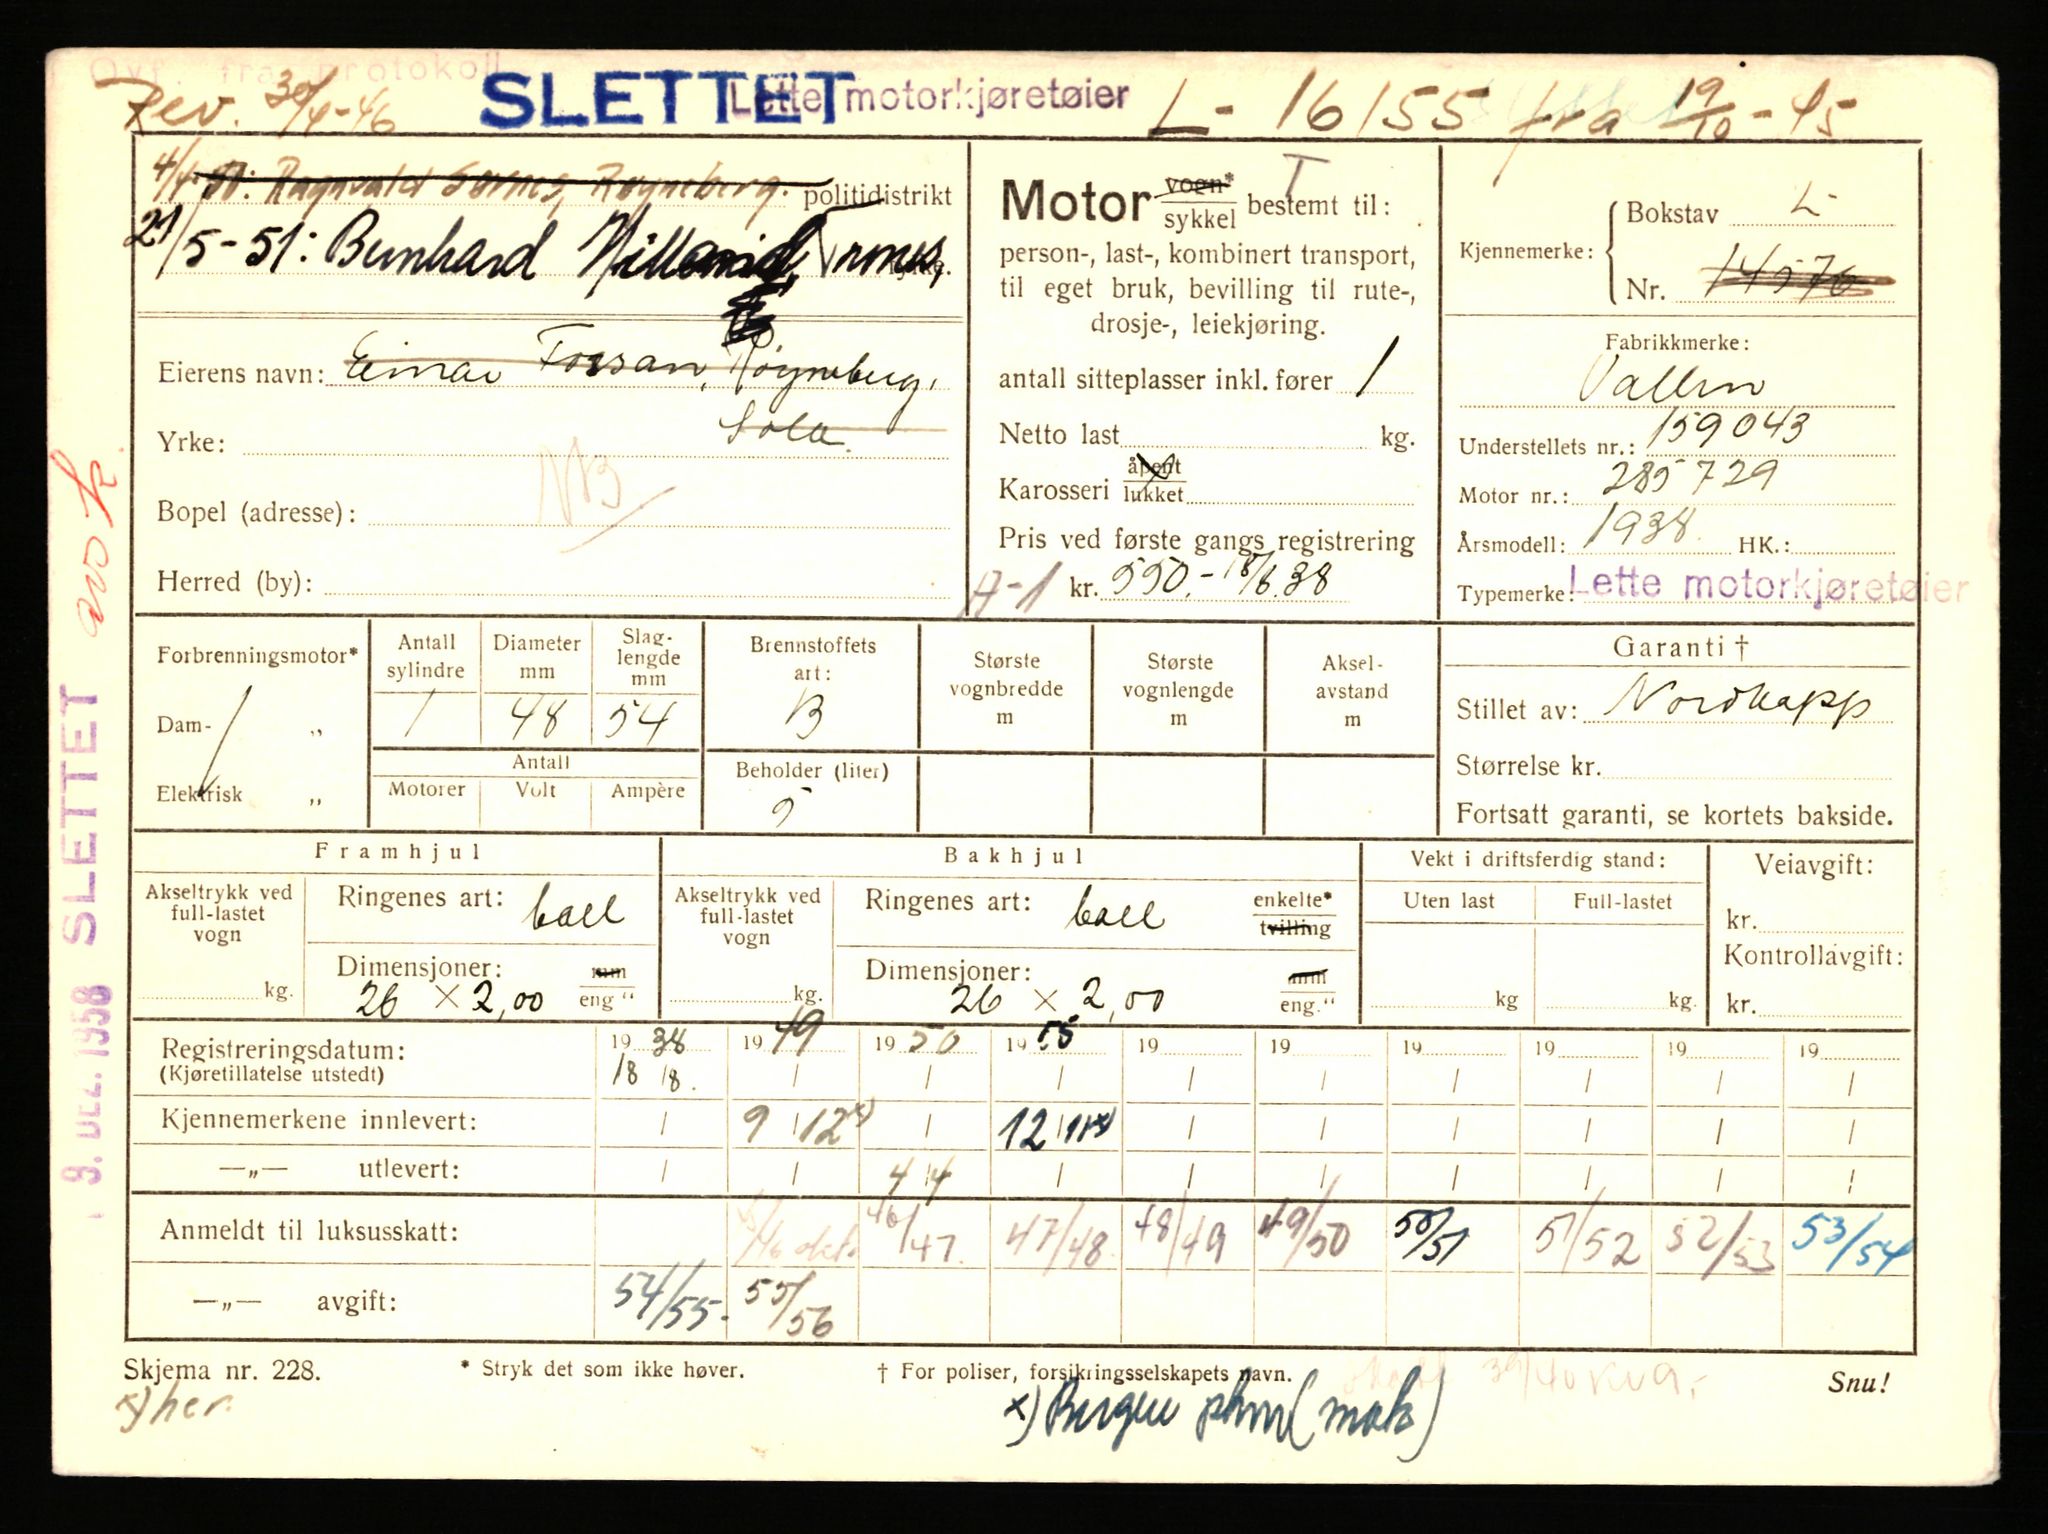 Ovf. fra protokoll
Rev. 30/4-46 SLETTET Lette motorkjøretøier L- 16155 fra 19/10-45
4/4-50: Ragnvald Sørnes, Røyneberg. politidistrikt
21/5-51: Bernhard
Eierens navn: Einar Forsan, Røyneberg,
Sola.
Yrke:
NB
Bopel (adresse):
Herred (by):
Motor vogn*/sykkel bestemt til:
T
person-, last-, kombinert transport,
til eget bruk, bevilling til rute-,
drosje-, leiekjøring.
antall sitteplasser inkl. fører 1
Netto last kg.
Karosseri åpent/lukket
Pris ved første gangs registrering
A-1 kr. 550.- 18/8.38
Kjennemerke: Bokstav L-
Nr. 14576
Fabrikkmerke:
Vallen
Understellets nr.: 159043
Motor nr.: 285729
Årsmodell: 1938. HK.:
Typemerke: Lette motorkjøretøier
Forbrenningsmotor*
Dam- „
Elektrisk „
Antall sylindre 1
Diameter mm 48
Slag-lengde mm 54
Antall
Motorer Volt Ampère
Brennstoffets art: B
Beholder (liter) 5
Største vognbredde m
Største vognlengde m
Aksel-avstand m
Garanti †
Stillet av: Nordkapp
Størrelse kr.
Fortsatt garanti, se kortets bakside.
Framhjul
Akseltrykk ved full-lastet vogn
kg.
Ringenes art: ball
Dimensjoner: mm
26 × 2,00 eng "
Bakhjul
Akseltrykk ved full-lastet vogn
kg.
Ringenes art: ball enkelte*/tvilling
Dimensjoner: mm
26 × 2,00 eng."
Vekt i driftsferdig stand:
Uten last Full-lastet
kg kg.
Veiavgift:
kr.
Kontrollavgift:
kr.
Registreringsdatum: 19 38 19 49 19 50 19 55 19 19 19 19 19 19
(Kjøretillatelse utstedt) 18/8. / / / / / / / / /
Kjennemerkene innlevert: / 9/12 x) / 12/11 x) / / / / / /
—„— utlevert: / / 4/4 / / / / / / /
Anmeldt til luksusskatt: 46/47. 47/48. 48/49 49/50 50/51 51/52 52/53 53/54
—„— avgift: 54/55- 55/56
Skjema nr. 228. * Stryk det som ikke høver. † For poliser, forsikringsselskapets navn. Snu!
x) her. x) Bergen
SLETTET
9. DEZ. 1958